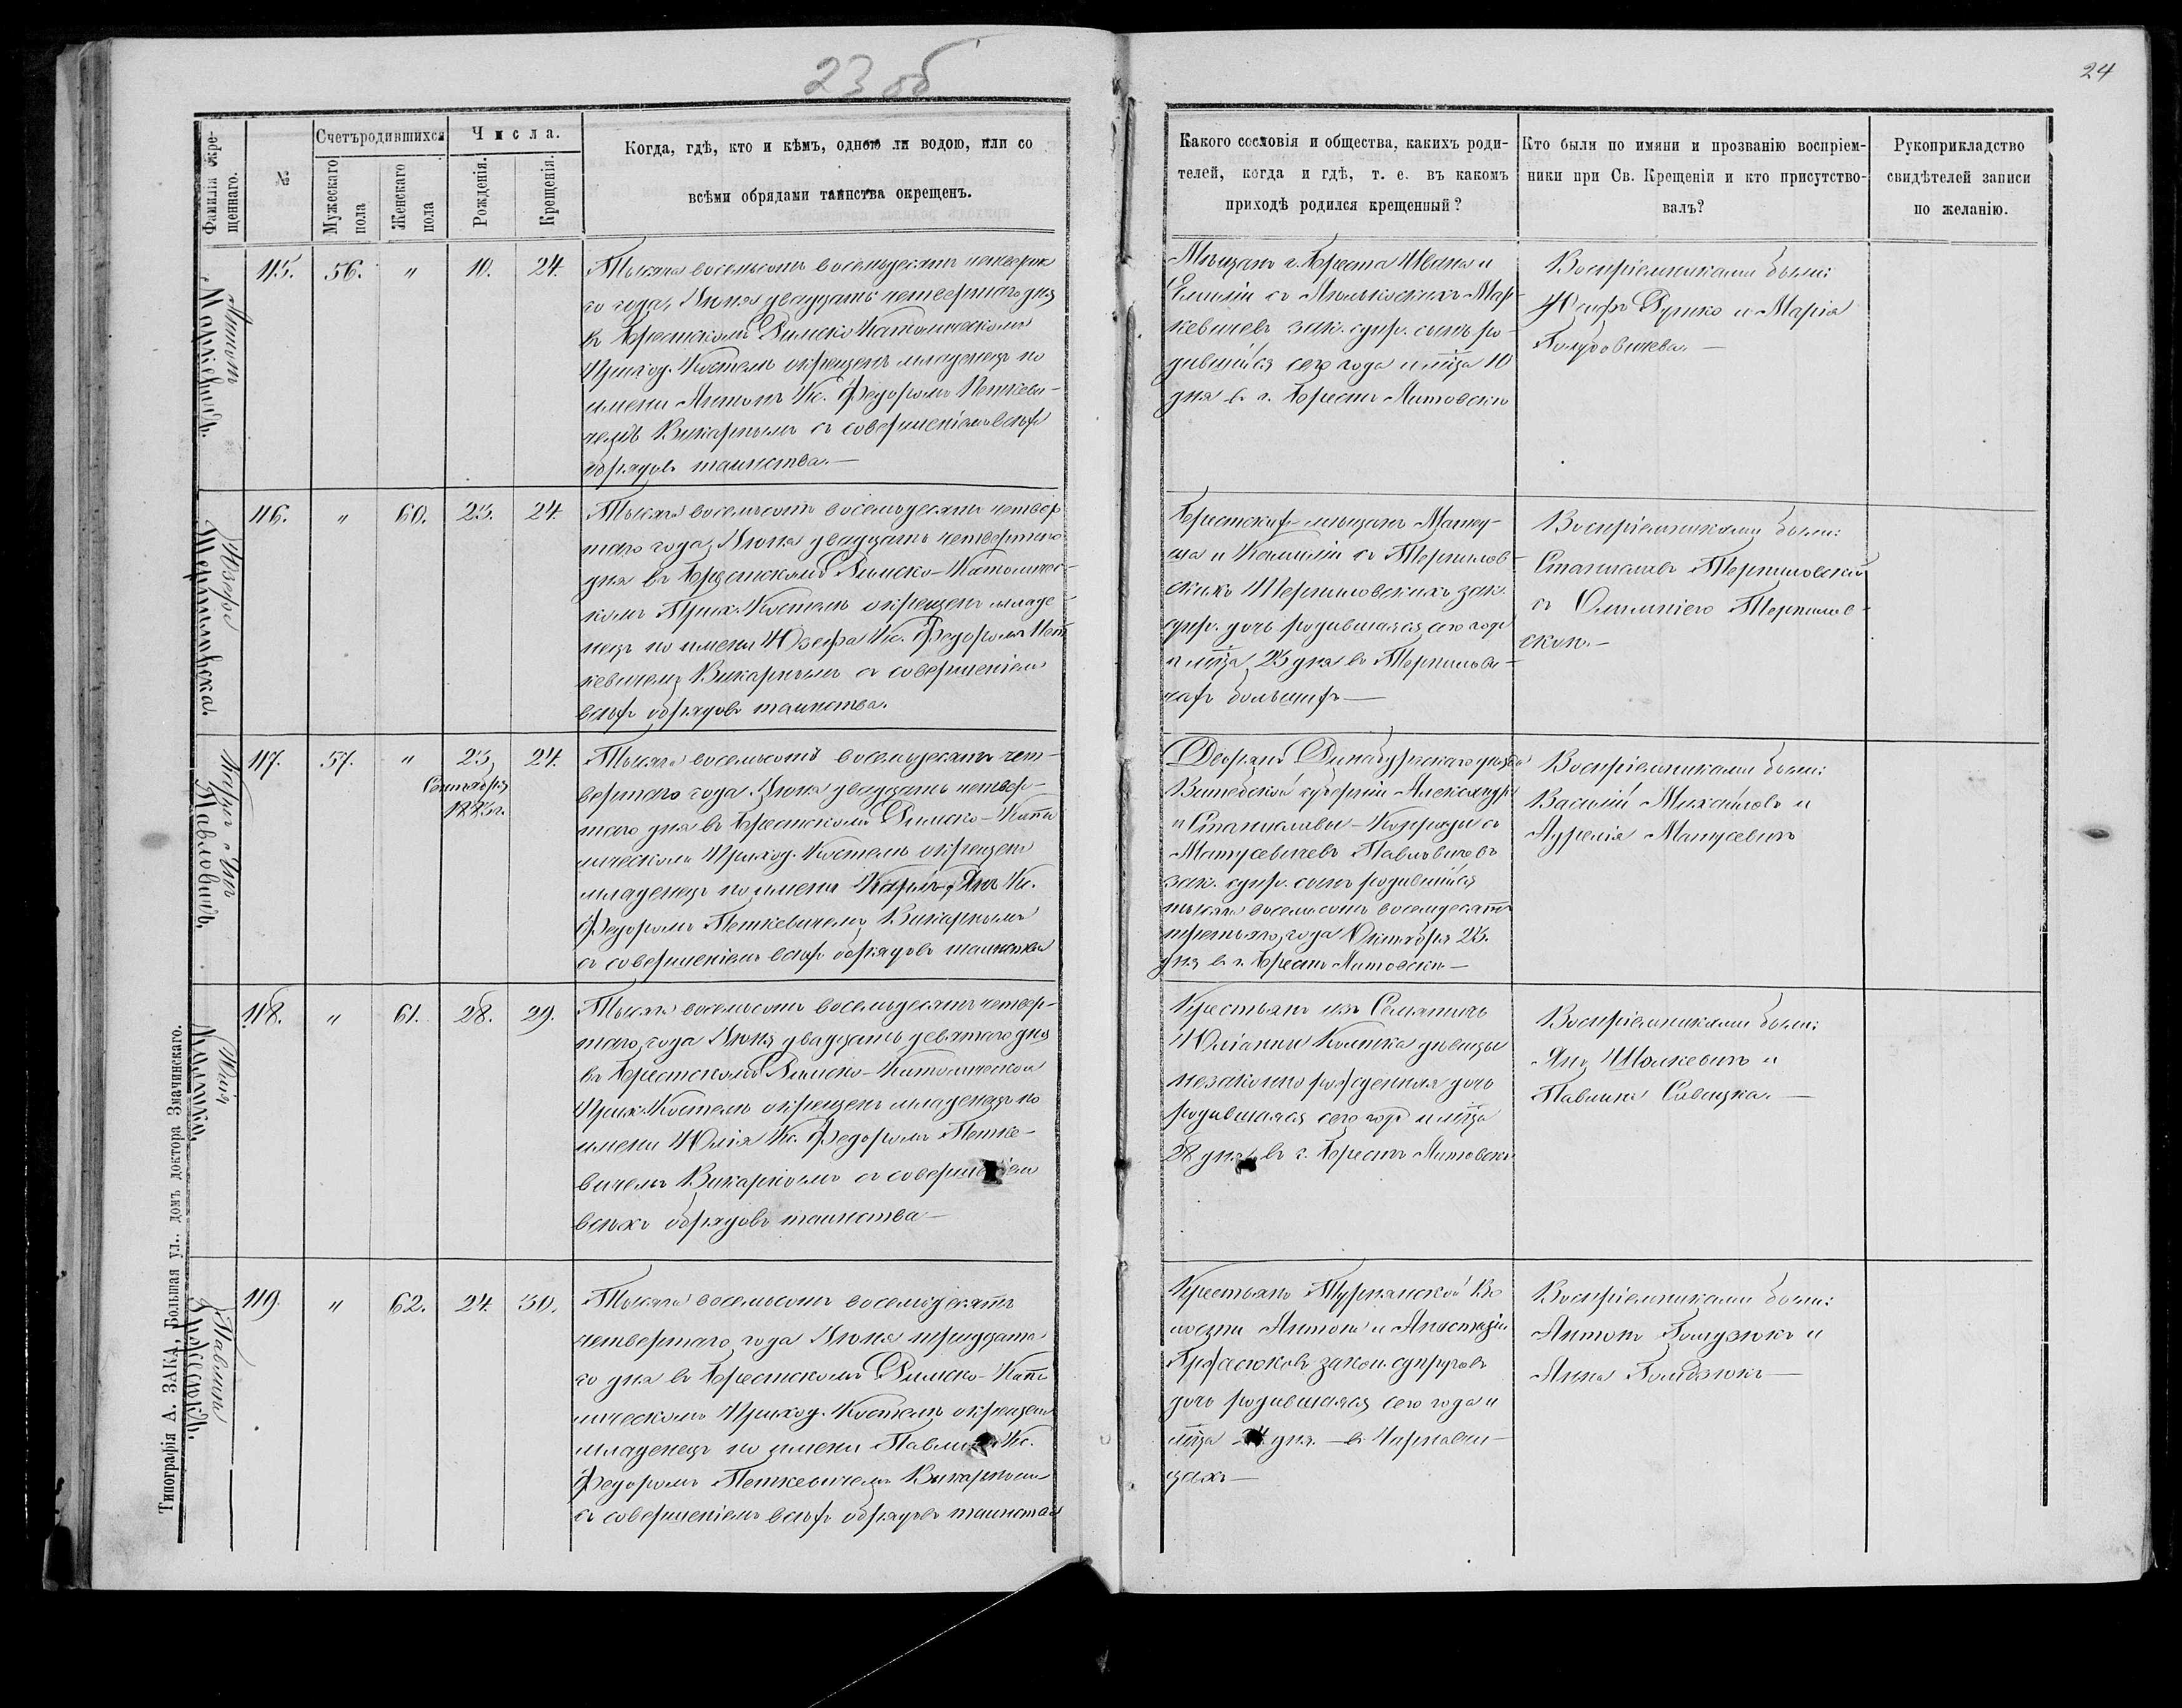 23 об
24
Фамилія кре-
щеннаго.
№
Счетъ родившихся
Мужескаго
пола
Женскаго
пола
Числа.
Рожденія.
Крещенія.
Когда, гдѣ, кто и кѣмъ, одною ли водою, или со
всѣми обрядами таинства окрещенъ.
Какого сословія и общества, какихъ роди-
телей, когда и гдѣ, т. е. въ какомъ
приходѣ родился крещенный?
Кто были по имяни и прозванію воспріем-
ники при Св. Крещеніи и кто присутство-
валъ?
Рукоприкладство
свидѣтелей записи
по желанію.
Антонъ
Маркевичъ.
115. 56. " 10. 24.
Тысяча восемьсотъ восемьдесятъ четверта
го года, Іюня двадцать четвертаго дня
въ Брестскомъ Римско Католическомъ
Приход. Костелѣ окрещенъ младенецъ по
имени Антонъ Кс. Федоромъ Петкеви-
чемъ Викарнымъ съ совершеніемъ всѣхъ
обрядовъ таинства.—
Мѣщанъ г. Бреста Ивана и
Емиліи съ Мар-
кевичевъ зак. супр. сынъ ро-
дившійся сего года и мца 10
дня в г. Брестѣ Литовскѣ
Воспріемниками были:
Іосифъ и Марія
Голубовичева.—
Юзефа
Терпиловска.
116. " 60. 23. 24.
Тысяча восемьсотъ восемьдесятъ четвер
таго года, Іюня двадцать четвертаго
дня въ Брестскомъ Римско-Католичес-
комъ Прих. Костелѣ окрещенъ младе-
нецъ по имени Юзефа Кс. Федоромъ Пет
кевичемъ Викарнымъ съ совершеніемъ
всѣхъ обрядовъ таинства.
Брестскихъ мѣщанъ Матеу-
ша и Камиліи съ Терпилов-
скихъ Терпиловскихъ зак.
супр. дочь родившаяся сего года
и мца 23 дня въ Терпилови-
чахъ большихъ—
Воспріемниками были:
Станиславъ Терпиловскій
съ Терпилов-
скою.—
Карлъ-Янъ
Павловичъ.
117. 57. " 23, 24.
1883 г.
Тысяча восемьсотъ восемьдесятъ чет-
вертаго года Іюня двадцать четвер-
таго дня въ Брестскомъ Римско-Като
лическомъ Приход. Костелѣ окрещенъ
младенецъ по имени Карлъ-Янъ Кс.
Федоромъ Петкевичемъ Викарнымъ
съ совершеніемъ всѣхъ обрядовъ таинства
Дворянъ Динабургскаго уѣзда
Витебской губерніи Александра
и Станиславы-Конрады съ
Матусевичевъ Павловичевъ
зак. супр. сынъ родившійся
тысяча восемьсотъ восемдесятъ
третьяго года 23.
дня в г. Брестѣ Литовскѣ—
Воспріемниками были:
Василій Михайловъ и
Аурелія Матусевичъ
Юлія
118. " 61. 28. 29.
Тысяча восемьсотъ восемьдесятъ четвер-
таго года Іюня двадцать девятаго дня
въ Брестскомъ Римско-Католическомъ
Прих. Костелѣ окрещенъ младенецъ по
имени Юлія Кс. Федоромъ Петке-
вичемъ Викарнымъ съ совершеніемъ
всѣхъ обрядовъ таинства—
Крестьянъ изъ Семятичъ
Юліанны дѣвицы
незаконно рожденная дочь
родившаяся сего года и мца
28 дня въ г. Брестѣ Литовскѣ
Воспріемниками были:
Янъ и
Павлина Савицка.—
Павлина
119. " 62. 24. 30.
Тысяча восемьсотъ восемьдесятъ
четвертаго года Іюня тридцата
го дня въ Брестскомъ Римско-Като
лическомъ Приход. Костелѣ окрещенъ
младенецъ по имени Павлина Кс.
Федоромъ Петкевичемъ Викарнымъ
съ совершеніемъ всѣхъ обрядовъ таинства
Крестьянъ Турнянской Во
лости Антона и Анастазіи
закон. супруговъ
дочь родившаяся сего года и
мца 24 дня.— въ Чернавчи-
цахъ—
Воспріемниками были:
Антонъ и
Анна
Типографія А. ЗАКА, Большая ул., домъ доктора Значинскаго.